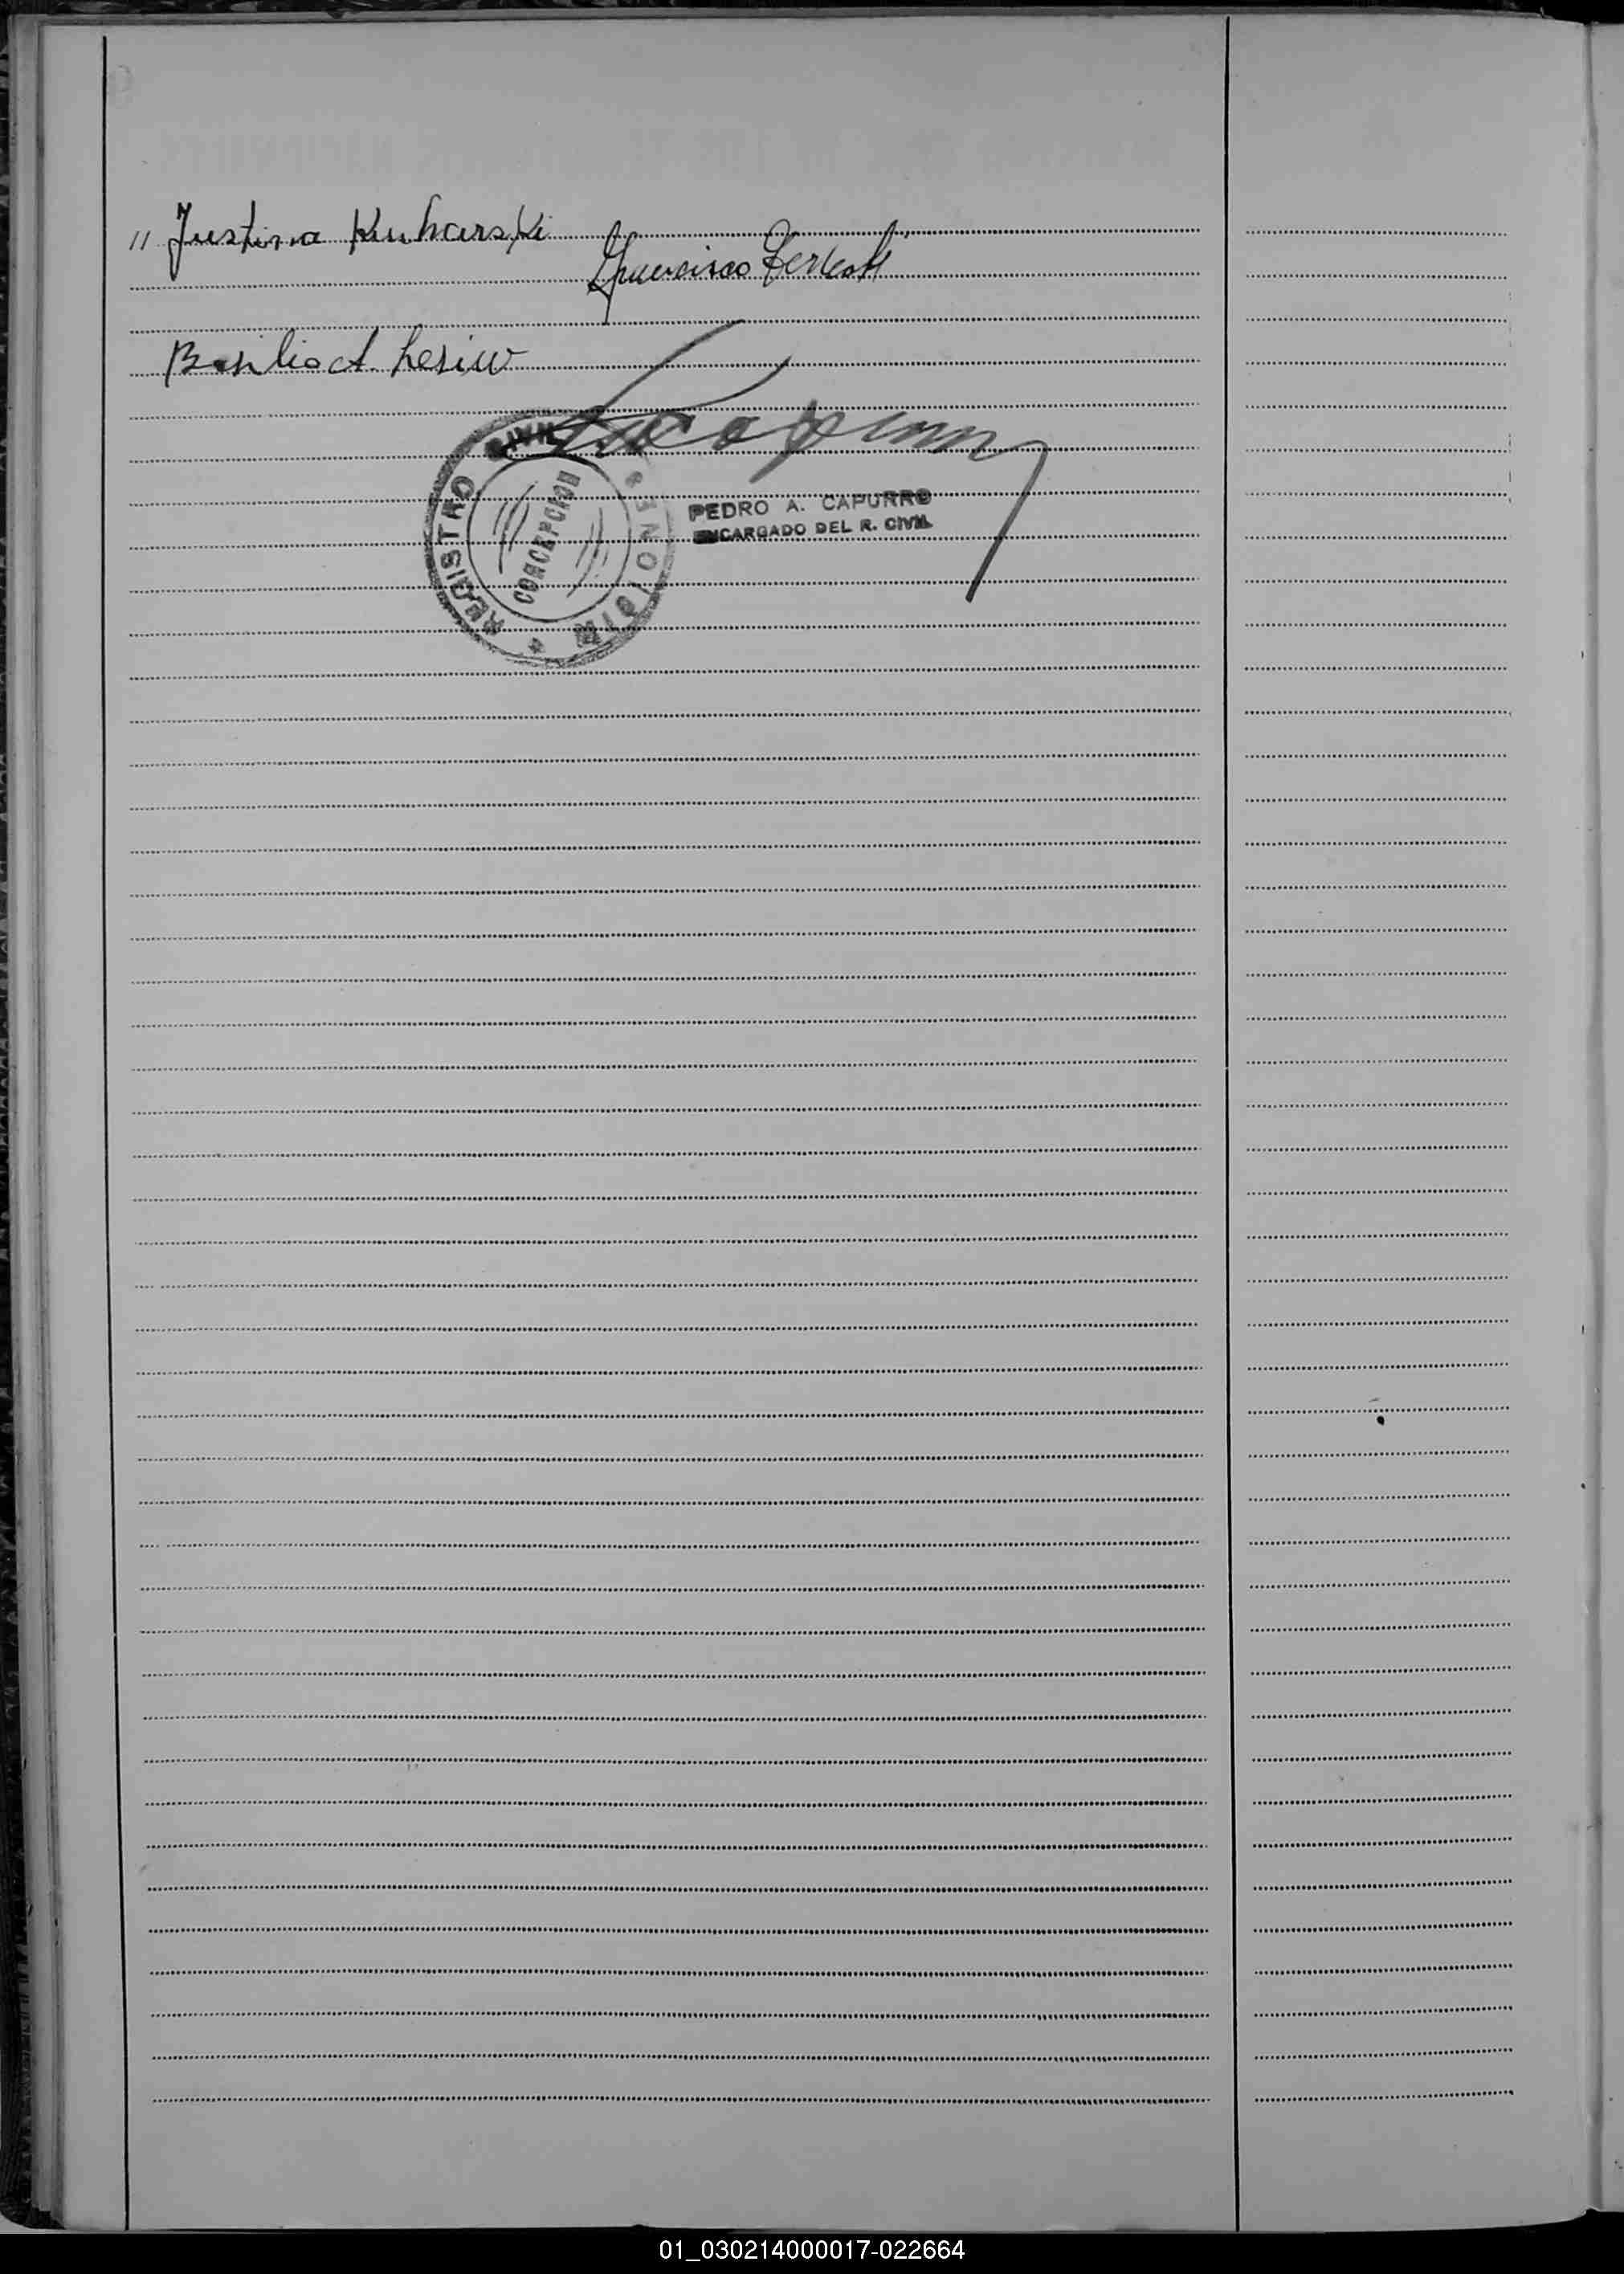 " Justina Kuharski
Francisco
Basilio A. Lesiw
REGISTRO CIVIL
CONCEPCION
MISIONES
PEDRO A. CAPURRO
ENCARGADO DEL R. CIVIL
01_030214000017-022664